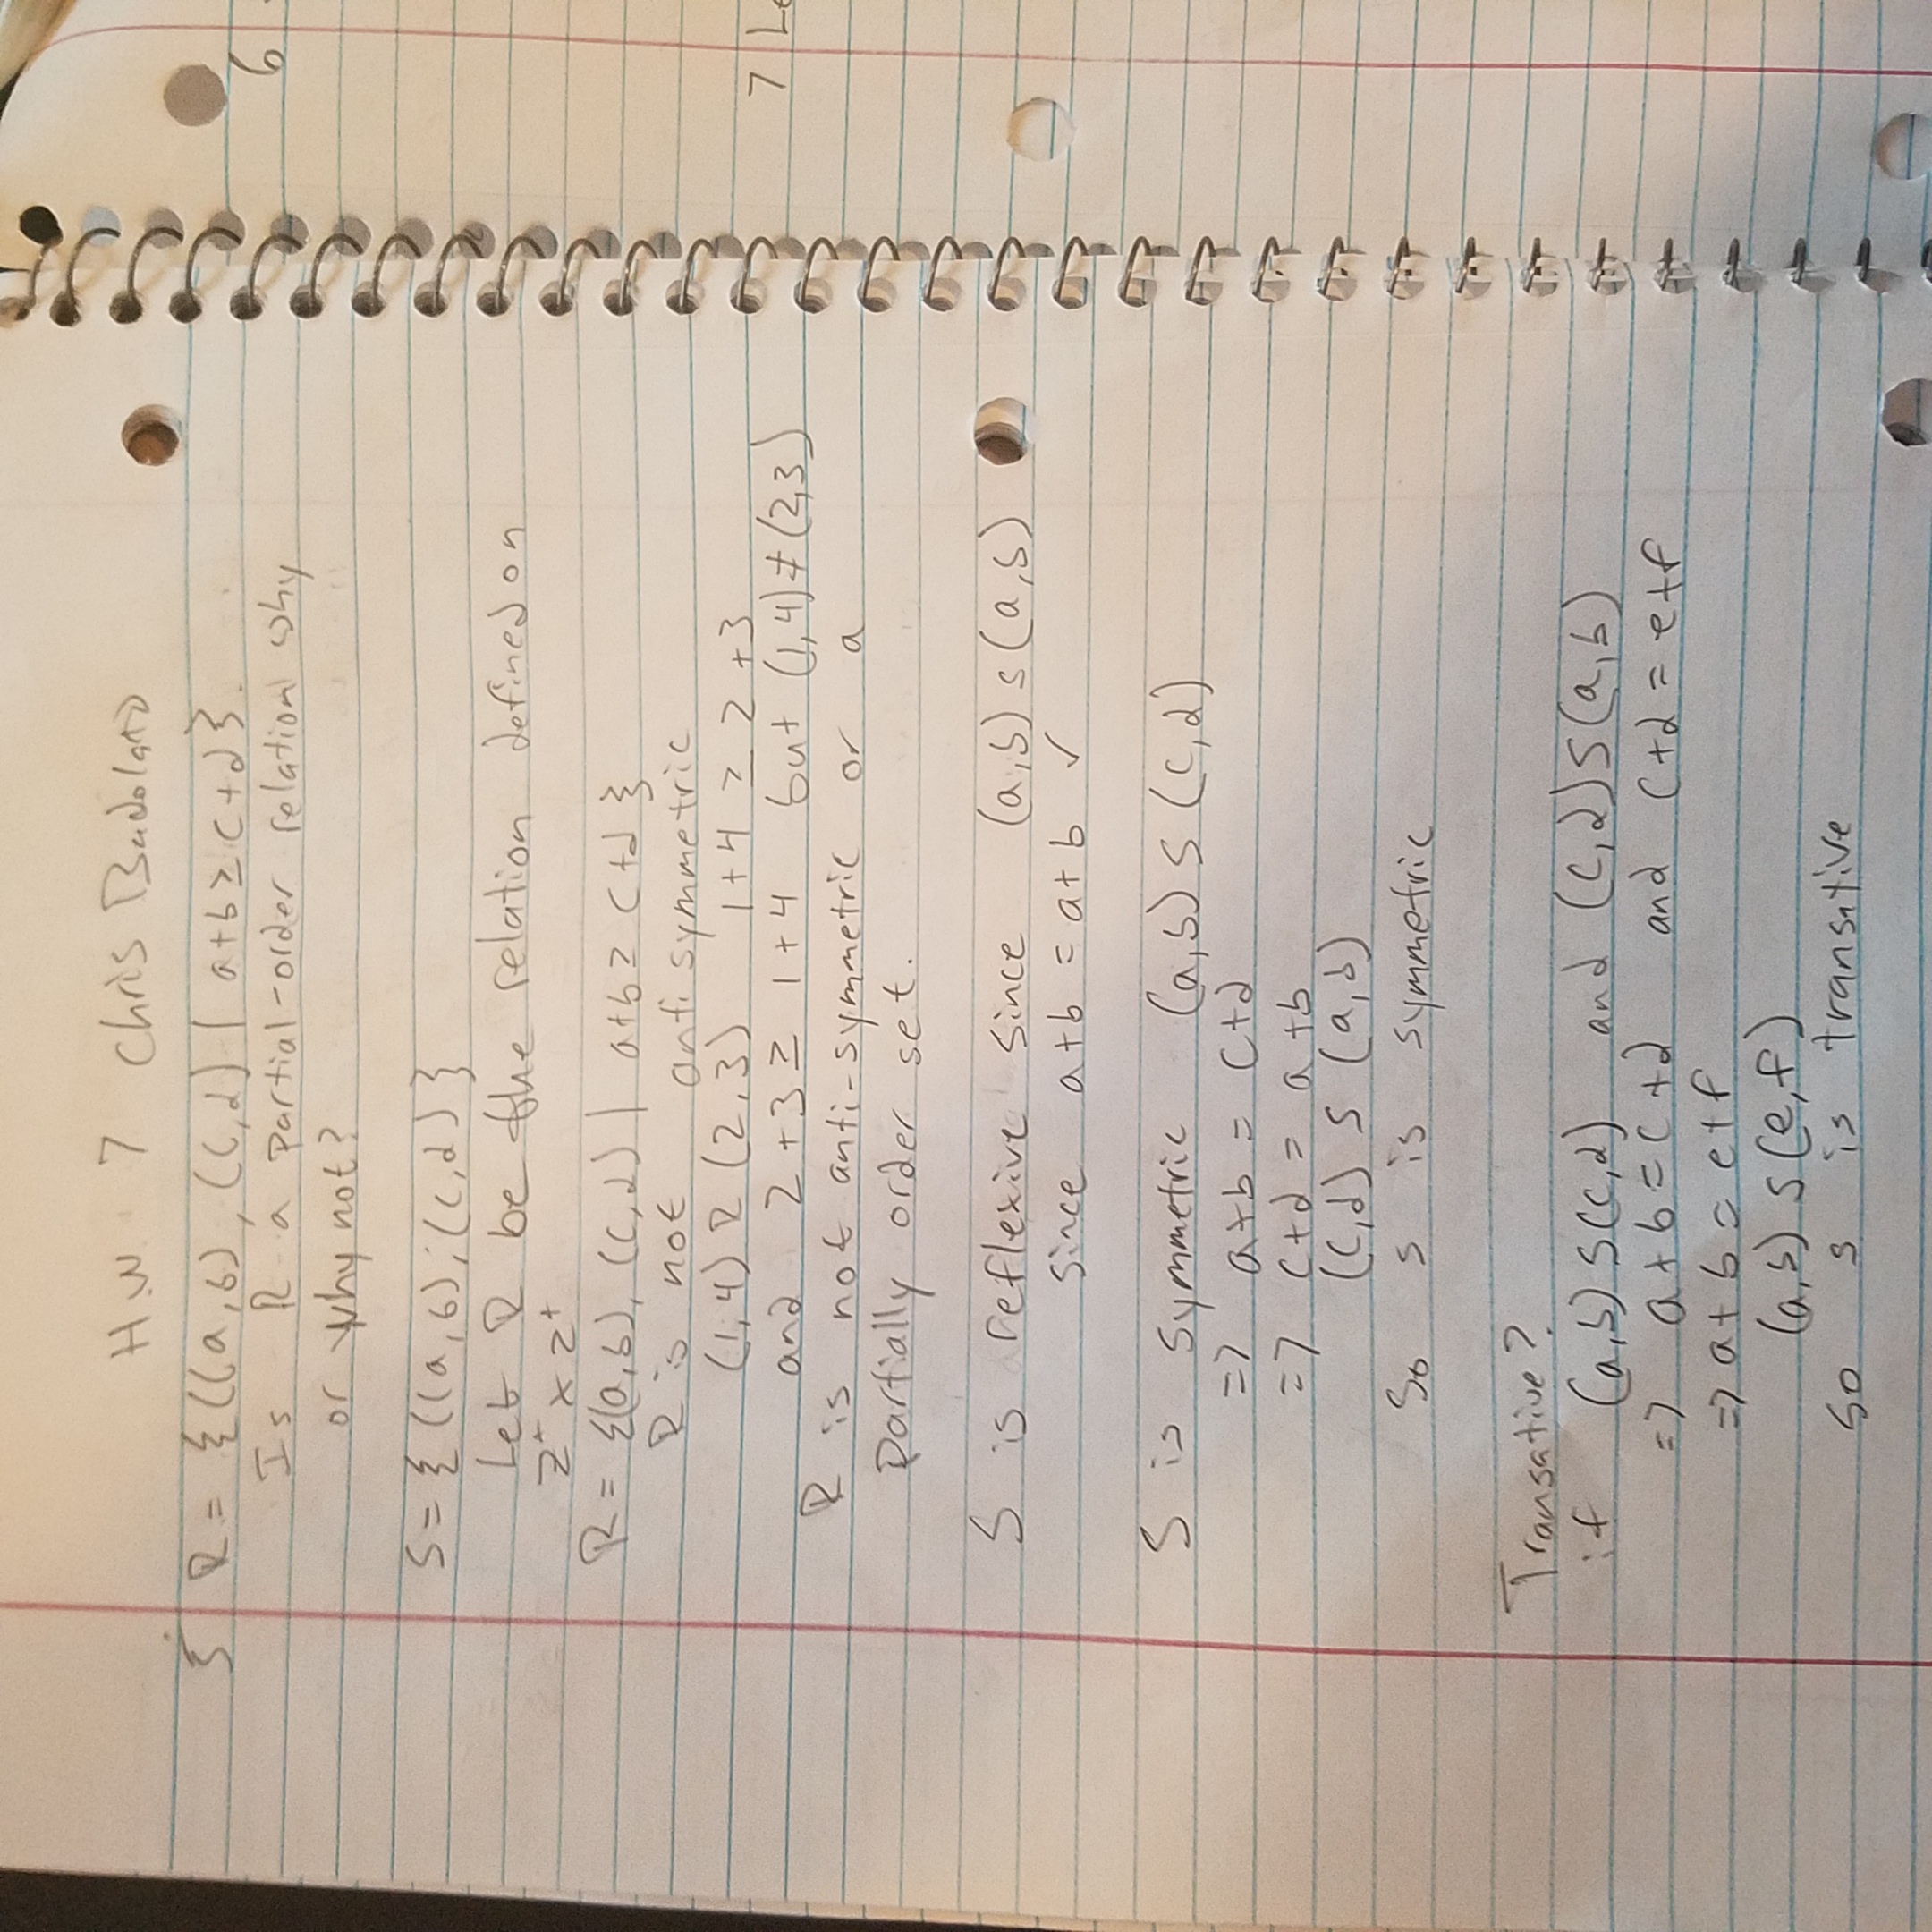 H.W. 7 Chris Badolato
5 R = {((a,b), (c,d) | a+b ≥ c+d}.
Is R a partial-order relation why
or why not?
S = {((a,b),(c,d)}
Let R be the relation defined on
Z⁺ x Z⁺
R = {(a,b), (c,d) | a+b ≥ c+d }
R is not anti symmetric
(1,4) R (2,3) 1+4 ≥ 2+3
and 2+3 ≥ 1+4 but (1,4) ≠ (2,3)
R is not anti-symmetric or a
Partially order set.
S is reflexive since (a,b) s (a,b)
since a+b = a+b ✓
S is symmetric (a,b) S (c,d)
=> a+b = c+d
=> c+d = a+b
(c,d) S (a,b)
So s is symmetric
Transative?
if (a,b) S (c,d) and (c,d) S (a,b)
=> a+b = c+d and c+d = e+f
=> a+b = e+f
(a,b) S (e,f)
so s is transative
6
7 Le